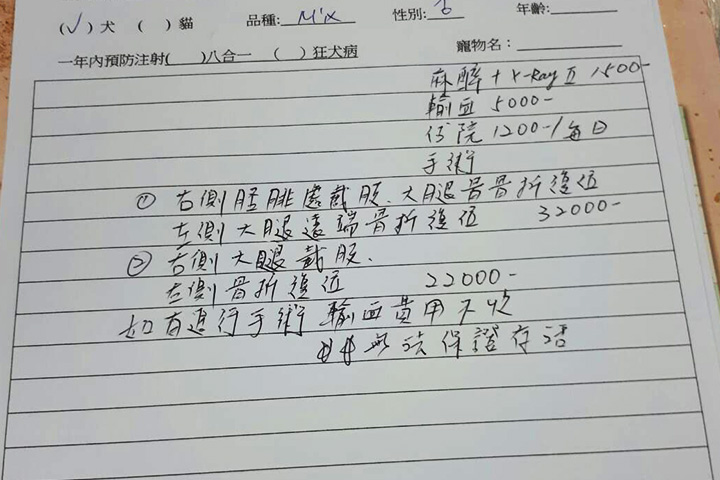 (✓)犬 ( )貓 品種: Mix 性別: 年齡:
一年內預防注射( )八合一 ( )狂犬病 寵物名:
麻醉 + X-Ray II 1500-
輸血 5000-
住院 1200-/每日
手術
① 右側脛腓處截肢、大腿骨骨折復位
左側大腿遠端骨折復位 32000-
② 右側大腿截肢.
左側骨折復位 22000-
如有進行手術 輸血費用不收
## 無法保證存活